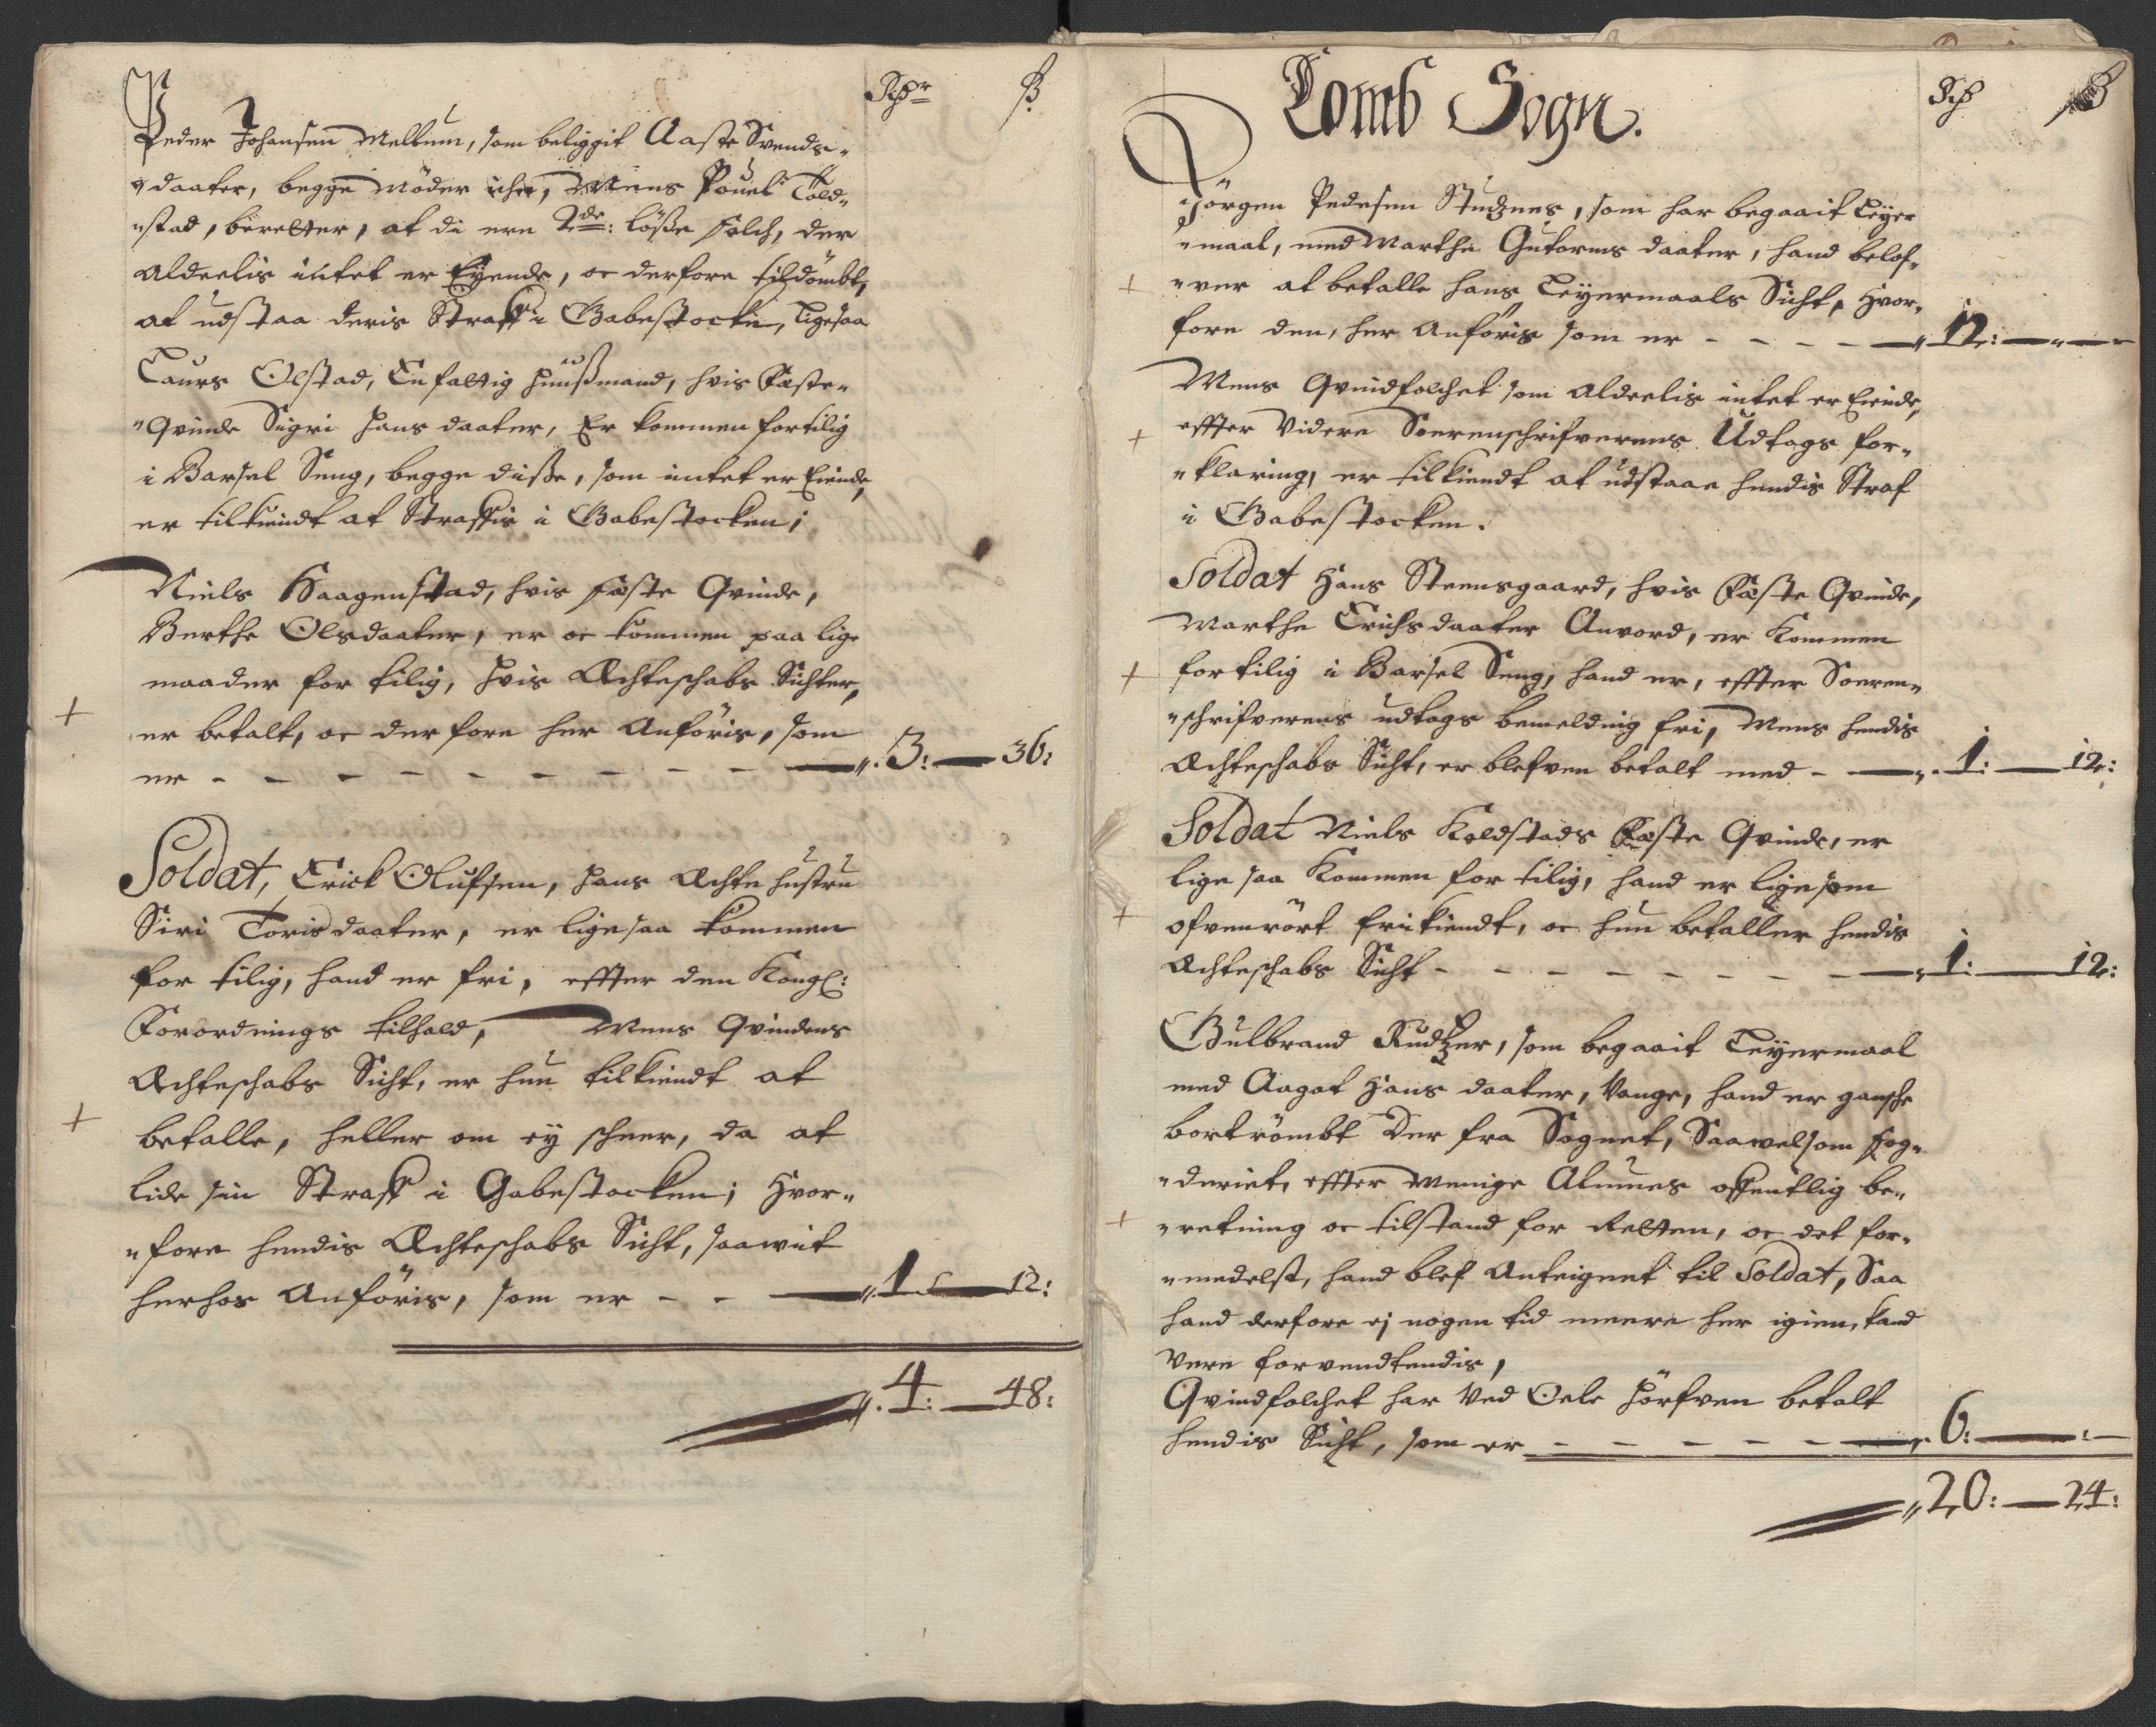 Rdr ß
Peder Johansen Mellum, som beliggit Aaste Svends„
„daater, begge Möder icke, Mens Pouel Told„
„stad, beretter, at di ere 2de: löße Folch, der
Aldeelis intet er Eyende, oc derfore tildömbt,
at udstaa deris Straff i Gabestocken, Ligesaa
Laurs Olstad, Enfoldig Huußmand, hvis Fæste„
„Qvinde Sigri Hans daater, Er kommen fortilig
i Barsel Seng, begge diße, som intet er Eiende,
er tilkiendt at Straffis i Gabestocken;
Niels Haagenstad, hvis Fæste Qvinde,
Berthe Olsdaater, er oc kommen paa lige
maader for tilig, hvis Ægteschabs Sichter,
er betalt, oc derfore her Anföris, som
er - - - - - - - - - - „ 3: — 36:
Soldat, Erick Olufsen, hans Ægte Hustru
Siri Torisdaater, er lige saa kommen
for tilig, hand er fri, effter den Kongl:
Forordnings tilhold, Mens Qvindens
Ægteschabs Sicht, er hun tilkiendt at
betalle, heller om ey scheer, da at
lide sin Straff i Gabestocken; Hvor„
„fore hendis Ægteschabs Sicht, saawit
herhos Anföris, som er - - — „ 1 — 12:
„ 4: — 48:
Tomb Sogn.
Rd ß
Jörgen Pedersen Studznes, som har begaait Leyer
„maal, med Marthe Gutorms daater, hand belof„
„ver at betalle hans Leyermaals Sicht, Hvor„
fore den, her Anföris som er - - - - — „ 12: — „ —
Mens Qvindfolchet som Aldeelis intet er Eiende,
effter Videre Soerenschrifverens Udtogs for„
„klaring, er tilkiendt at udstaae hendis Straf
i Gabestocken.
Soldat Hans Steensgaard, hvis Fæste Qvinde,
Marthe Erichsdaater Anvord, er Kommen
for tilig i Barsel Seng, hand er, effter Soeren„
„schrifverens udtogs bemelding fri, Mens hendis
Ægteschabs Sicht, er blefven betalt med - — „ 1: — 12:
Soldat Niels Koldstads Fæste Qvinde, er
lige saa Kommen for tilig, hand er lige som
ofvenrört frikiendt, oc hun betaller hendis
Ægteschabs Sicht - - - - - - - - — „ 1: — 12:
Gulbrand Rudtzer, som begaait Leyermaal
med Aagot Hans daater, Vange, hand er gansche
bortrömbt Der fra Sognet, Saawelsom Fog„
„deriet, effter Menige Almues offentlig be„
„retning oc tilstand for Retten, oc det for„
„medelst, hand blef Anteignet til Soldat, Saa
hand derfore ej nogen tid meere her igien, kand
Vere forvendtendis,
Qvindfolchet har Ved Oele Hörfven betalt
hendis Sicht, som er - - - - - — „ 6: — : —
„ 20: — 24: